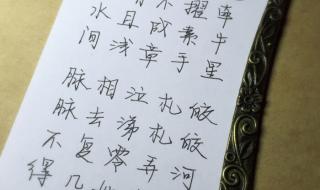 牵牛星
擢素手
不成章
且浅
水间
皎皎河
札札弄
泣涕零
相去复几
脉脉不得